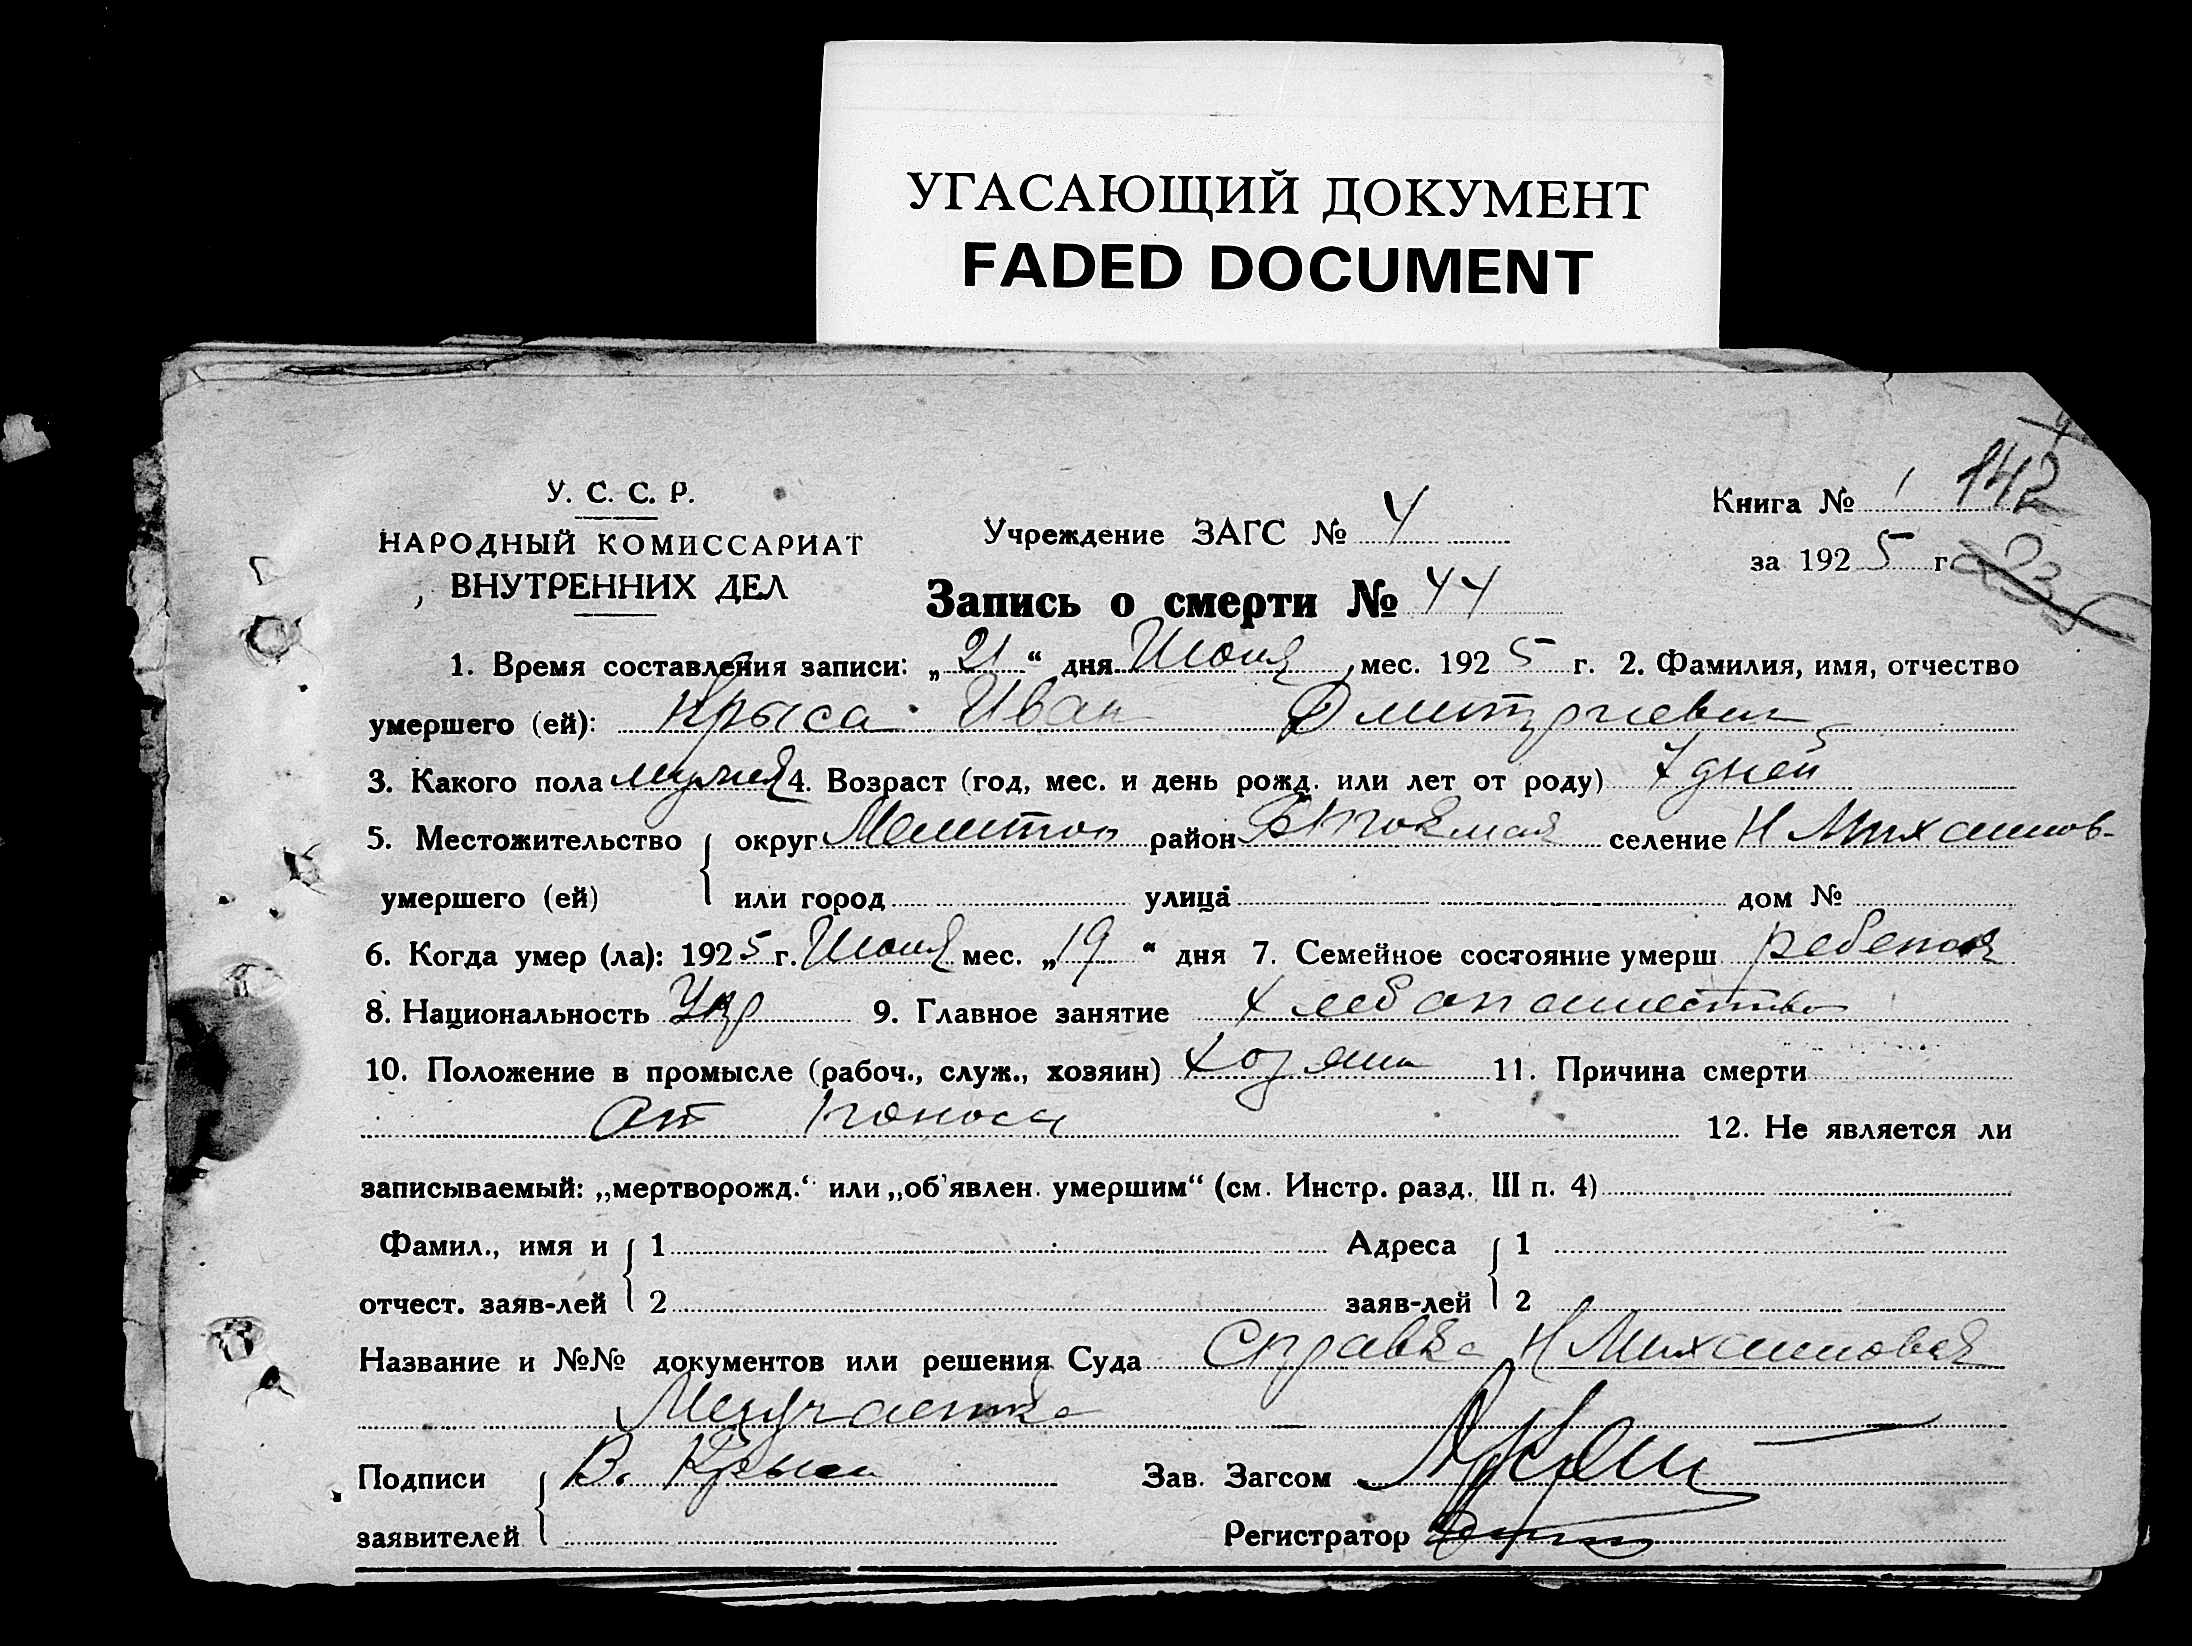 УГАСАЮЩИЙ ДОКУМЕНТ
FADED DOCUMENT
У. С. С. Р.
НАРОДНЫЙ КОМИССАРИАТ
ВНУТРЕННИХ ДЕЛ
Учреждение ЗАГС № 4
Книга № 1 142
за 1925 г.
Запись о смерти № 44
1. Время составления записи: „21“ дня Июня мес. 1925 г. 2. Фамилия, имя, отчество
умершего (ей): Крыса Иван Дмитриевич
3. Какого пола мужск 4. Возраст (год, мес. и день рожд. или лет от роду) 7 дней
5. Местожительство округ Мелитоп район селение Н Михайлов-
умершего (ей) или город улица дом №
6. Когда умер (ла): 1925 г. Июня мес. „19“ дня 7. Семейное состояние умерш ребенок
8. Национальность Укр 9. Главное занятие хлебопашество
10. Положение в промысле (рабоч., служ., хозяин) хозяин 11. Причина смерти
от поноса 12. Не является ли
записываемый: „мертворожд.“ или „об'явлен. умершим“ (см. Инстр. разд. III п. 4)
Фамил., имя и 1 Адреса 1
отчест. заяв-лей 2 заяв-лей 2
Название и №№ документов или решения Суда Справка Н Михайловск
Медучастка
Подписи В. Крыса Зав. Загсом
заявителей Регистратор